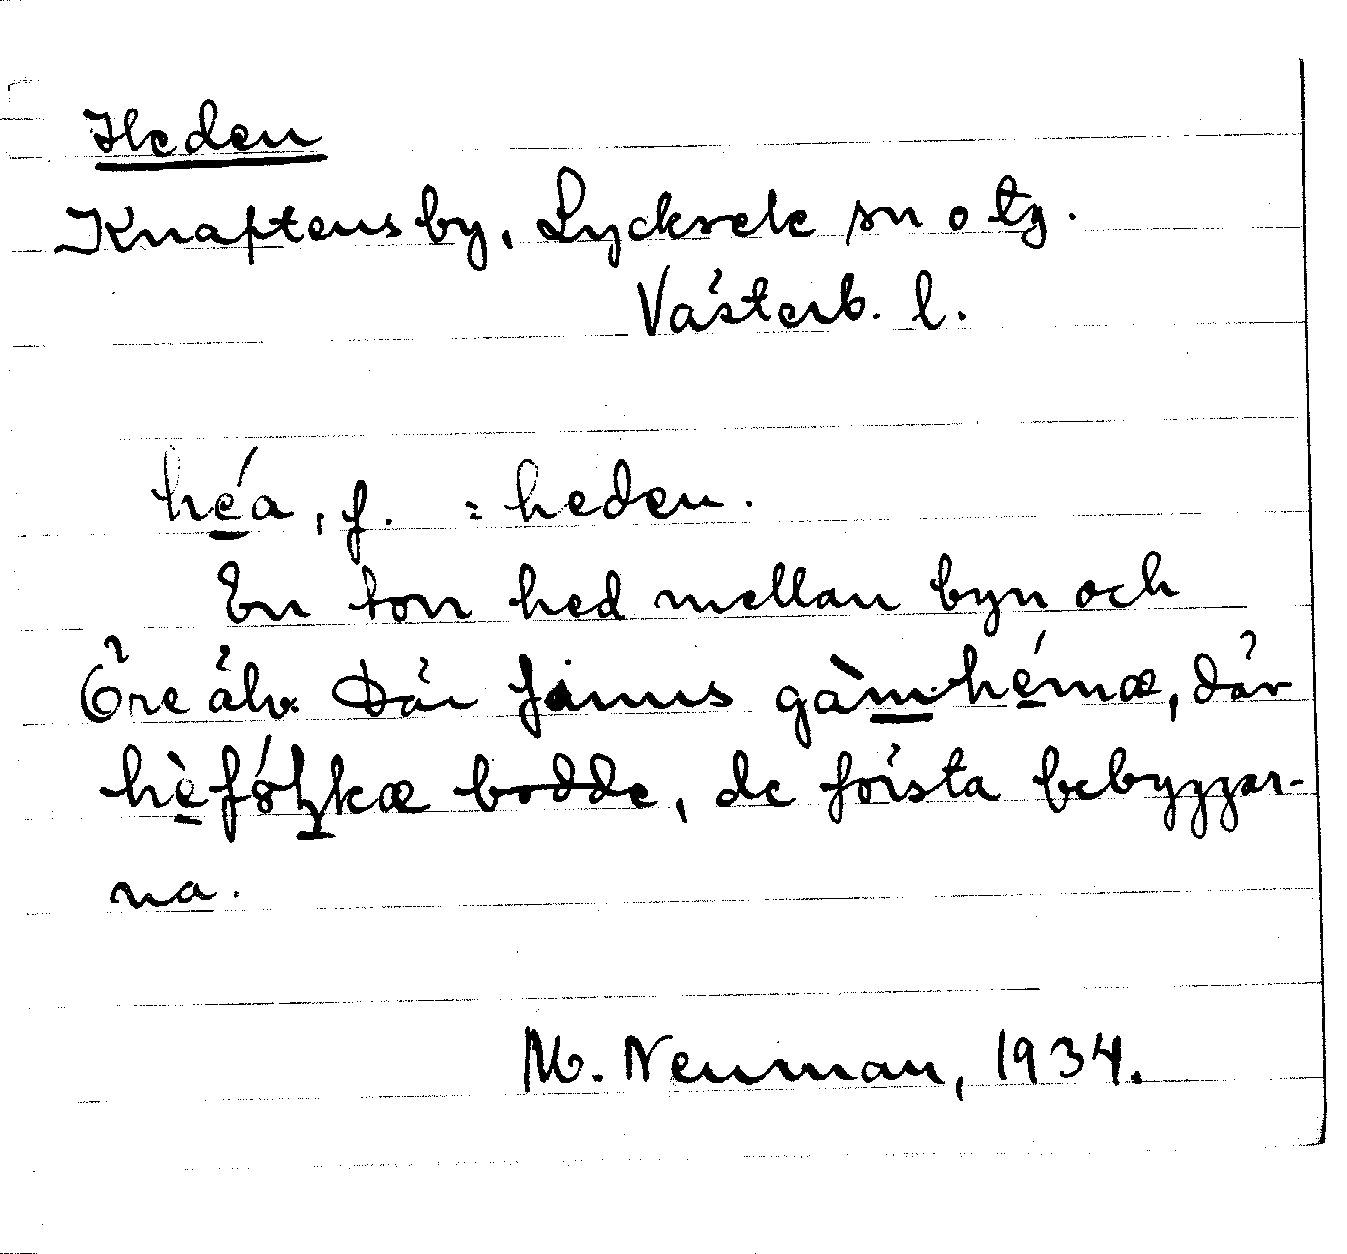 Heden
Knaftens by, Lycksele sn o tg.
Västerb. l.
héa, f. = heden.
En torr hed mellan byn och
Öre älv. Där finnes gàmhémæ, där
hèfóḷkæ bodde, de första bebyggar-
na.
M. Neuman, 1934.